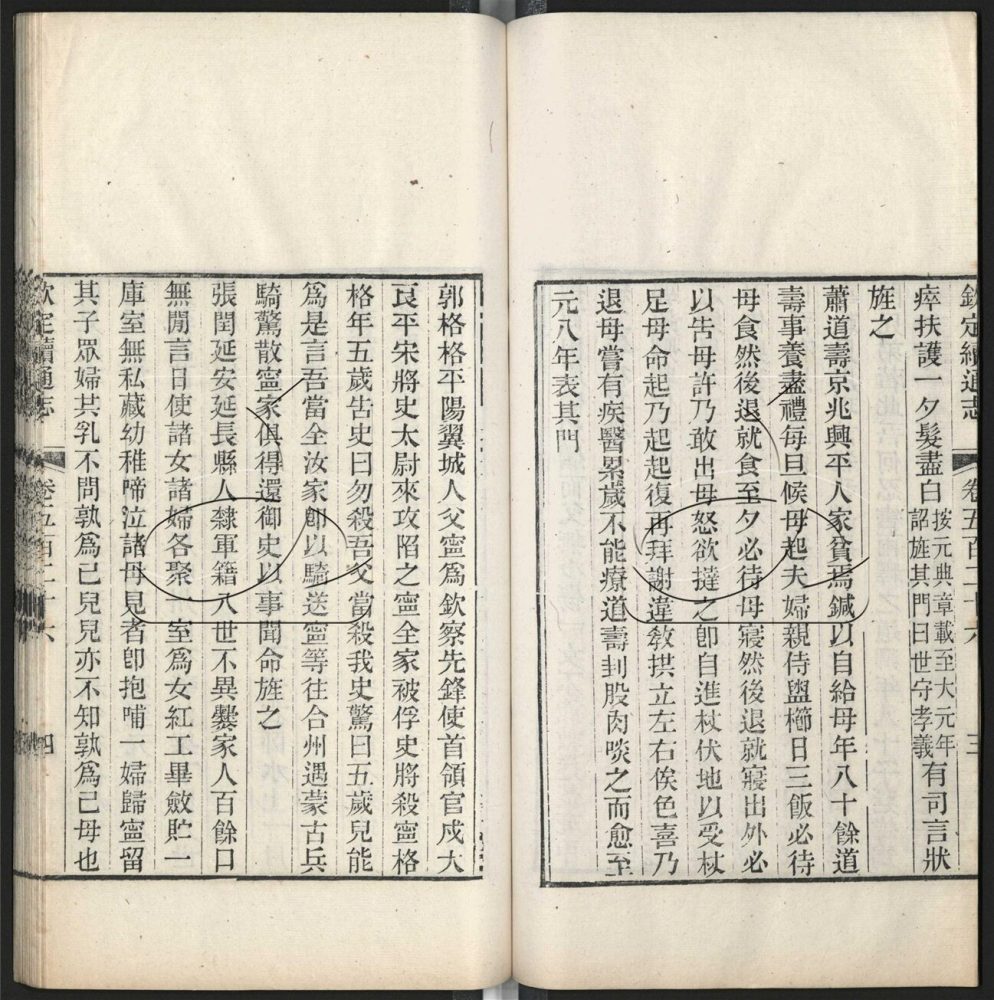 欽定續通志 卷五百二十六 三
瘁扶護一夕髮盡白按元典章載至大元年詔旌其門曰世守孝義有司言狀
旌之
蕭道壽京兆興平人家貧焉鍼以自給母年八十餘道
壽事養盡禮每旦候母起夫婦親侍盥櫛日三飯必待
母食然後退就食至夕必待母寢然後退就寢出外必
以告母許乃敢出母怒欲撻之卽自進杖伏地以受杖
足母命起乃起起復再拜謝違教拱立左右俟色喜乃
退母嘗有疾醫累歲不能療道壽刲股肉啖之而愈至
元八年表其門
郭格格平陽翼城人父寧爲欽察先鋒使首領官戍大
良平宋將史太尉來攻陷之寧全家被俘史將殺寧格
格年五歲告史曰勿殺吾父當殺我史驚曰五歲兒能
爲是言吾當全汝家卽以騎送寧等往合州遇蒙古兵
騎驚散寧家俱得還御史以事聞命旌之
張閏延安延長縣人隸軍籍八世不異爨家人百餘口
無閒言日使諸女諸婦各聚一室爲女紅工畢斂貯一
庫室無私藏幼稚啼泣諸母見者卽抱哺一婦歸寧留
其子眾婦共乳不問孰爲己兒兒亦不知孰爲己母也
欽定續通志 卷五百二十六 四